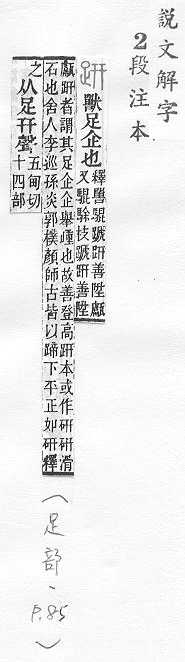 說文解字
2段注本
趼 獸足企也
釋嘼騉蹏趼善陞甗
又騉駼枝蹏趼善陞
甗趼者謂其足企企舉踵也故善登高趼本或作研研滑
石也舍人李巡孫炎郭樸顏師古皆以蹄下平正如研釋
之从足幵聲
五甸切
十四部
(足部、P.85)